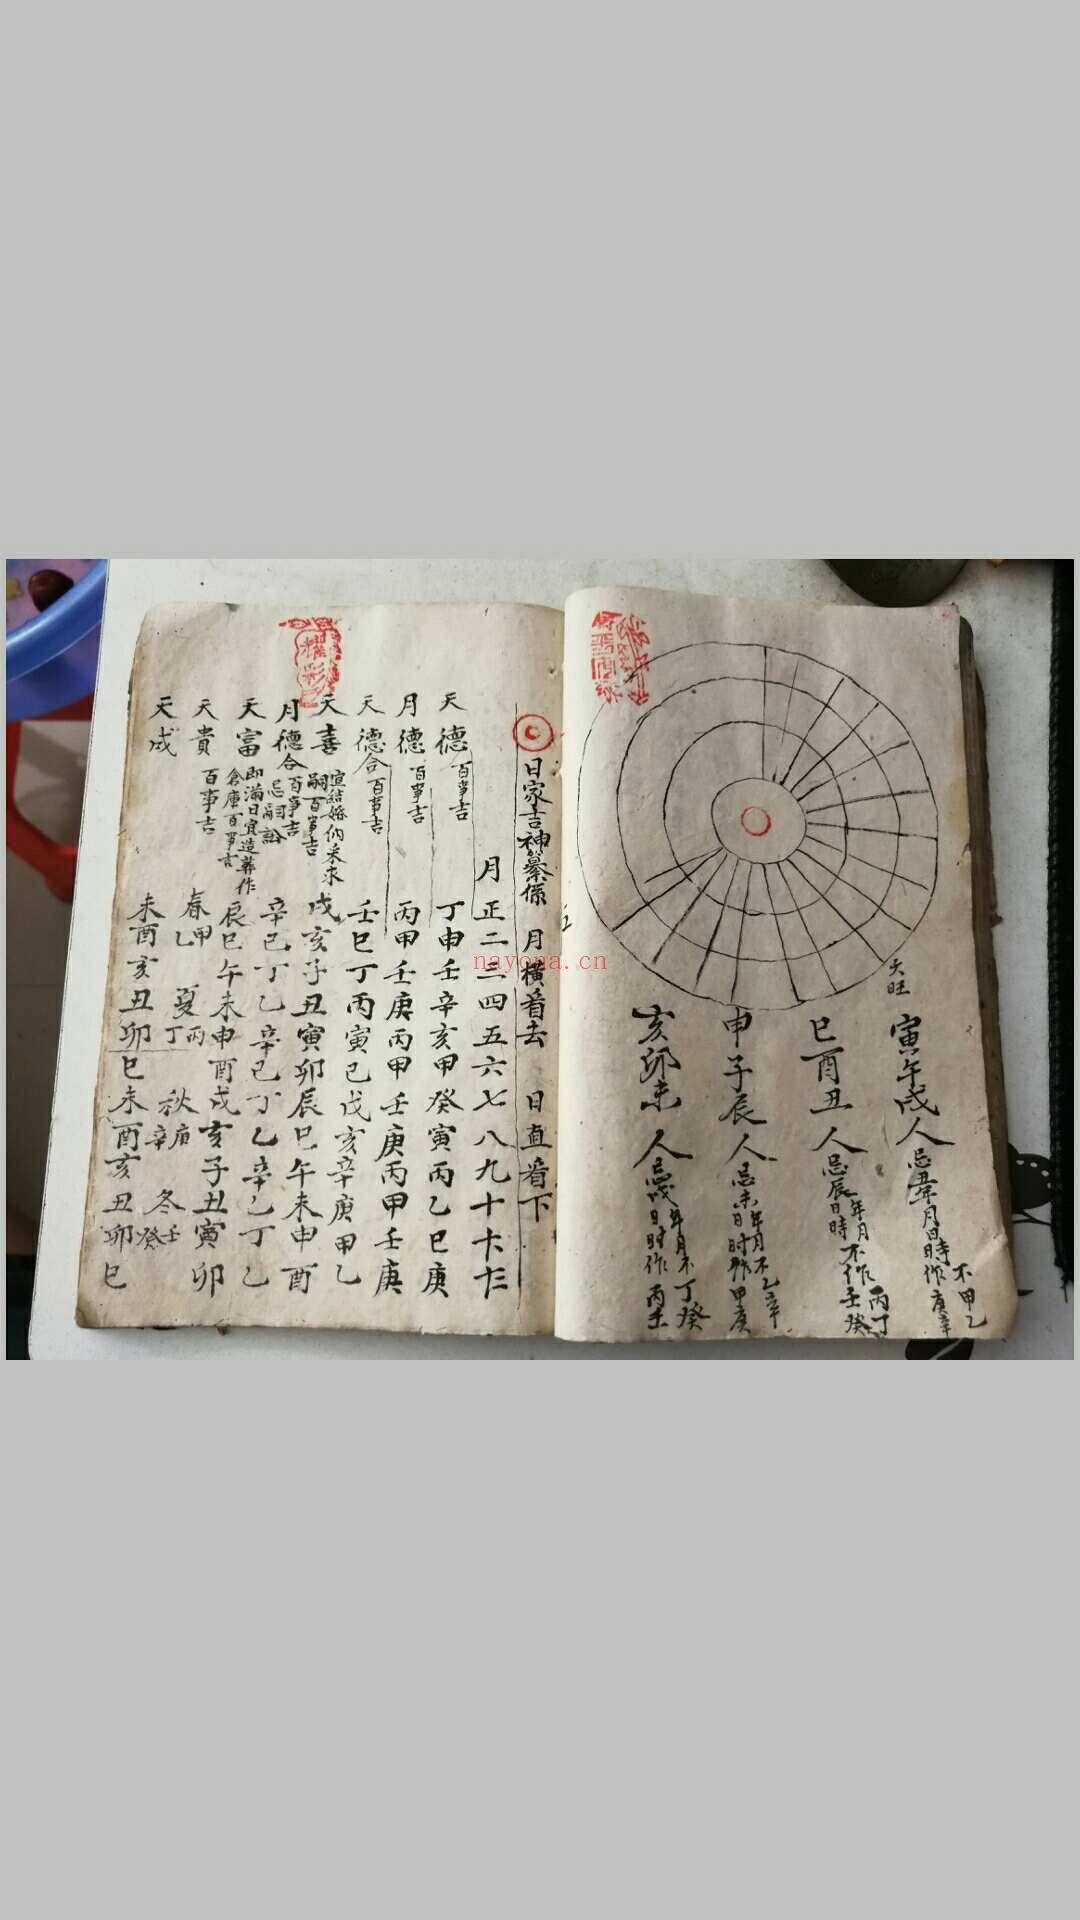 大旺
寅午戌人忌丑年月日時不作甲乙庚辛
巳酉丑人忌辰年月日時不作丙丁壬癸
申子辰人忌未年月日时不作乙辛甲庚
亥卯未人忌戌年月日时不作丁癸丙壬
日家吉神纂係 月橫看去 日直看下
月 正二三四五六七八九十十一十二
天德 百事吉 丁申壬辛亥甲癸寅丙乙巳庚
月德 百事吉 丙甲壬庚丙甲壬庚丙甲壬庚
天德合 百事吉 壬巳丁丙寅己戊亥辛庚甲乙
天喜 宜結婚納采求嗣百事吉 戌亥子丑寅卯辰巳午未申酉
月德合 百事吉忌詞訟 辛己丁乙辛己丁乙辛己丁乙
天富 即滿日宜造葬作倉庫百事吉 辰巳午未申酉戌亥子丑寅卯
天貴 百事吉 春甲乙 夏丙丁 秋庚辛 冬壬癸
天成 未酉亥丑卯巳未酉亥丑卯巳
耀彩
nayona.cn